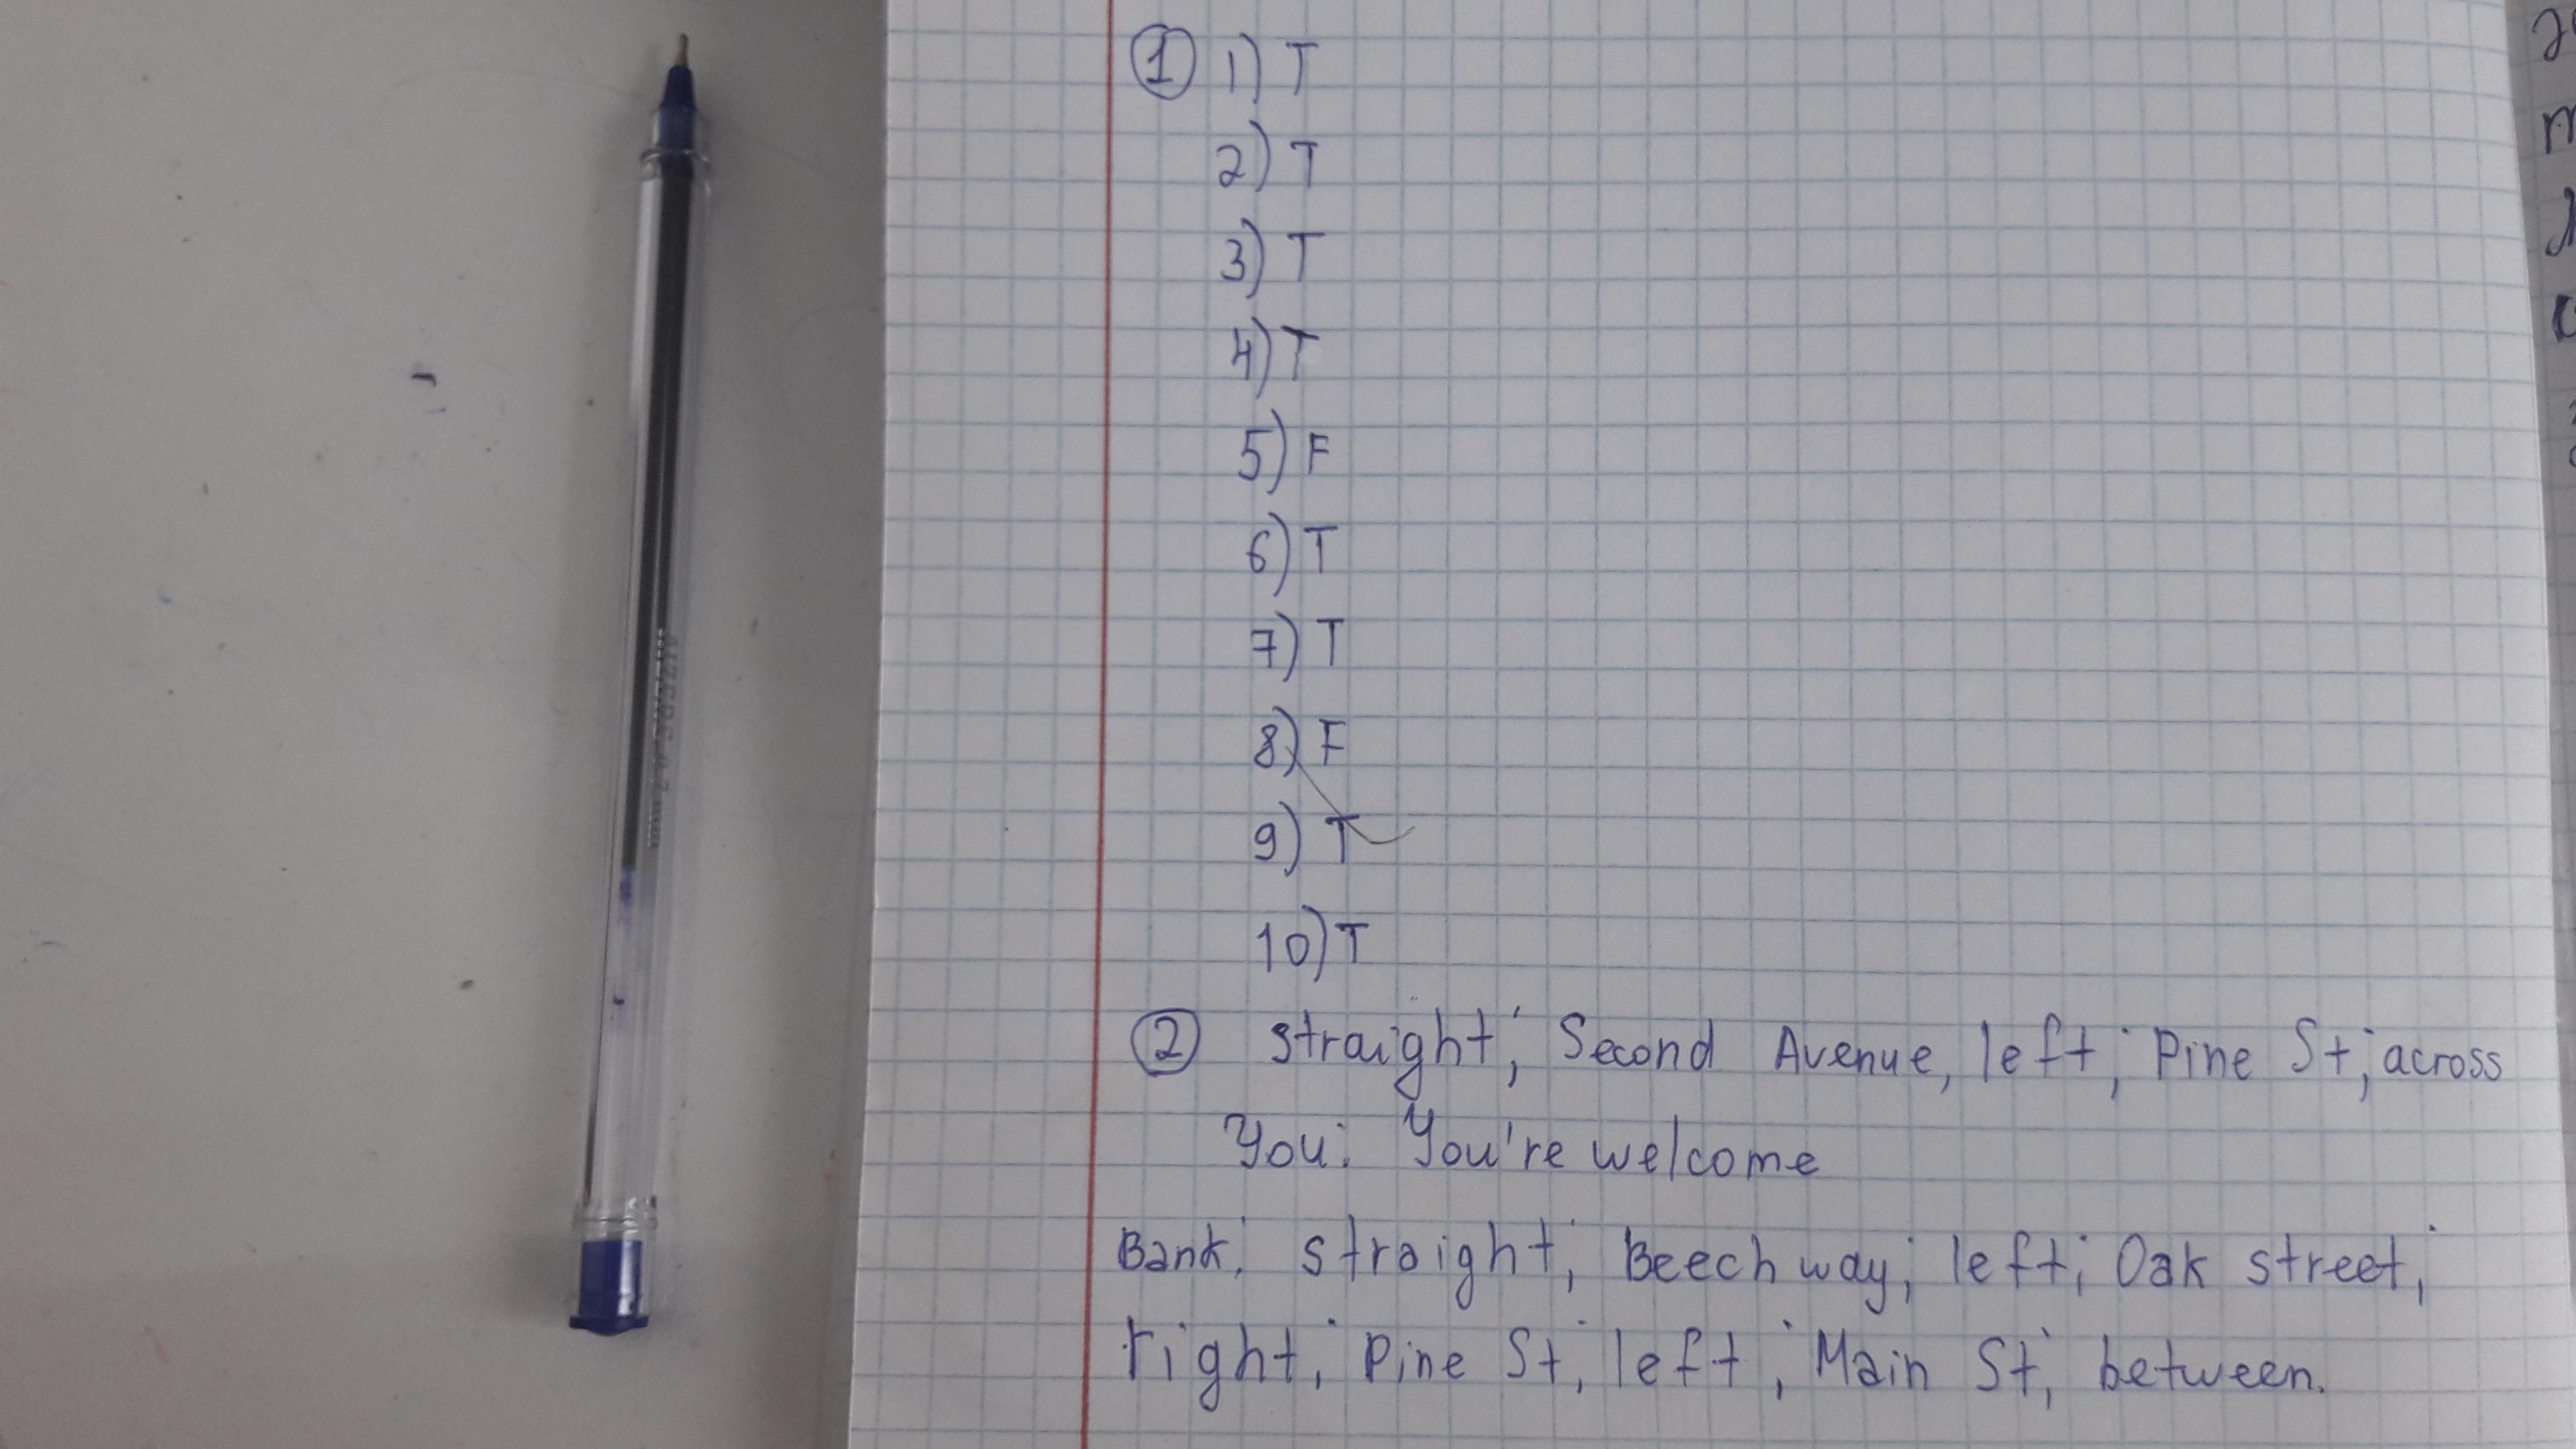 ① 1) T
2) T
3) T
4) T
5) F
6) T
7) T
8) F
9) T
10) T
② straight; Second Avenue, left; Pine St; across
You: You're welcome
Bank: straight; Beech way; left; Oak street;
right; Pine St; left; Main St; between.